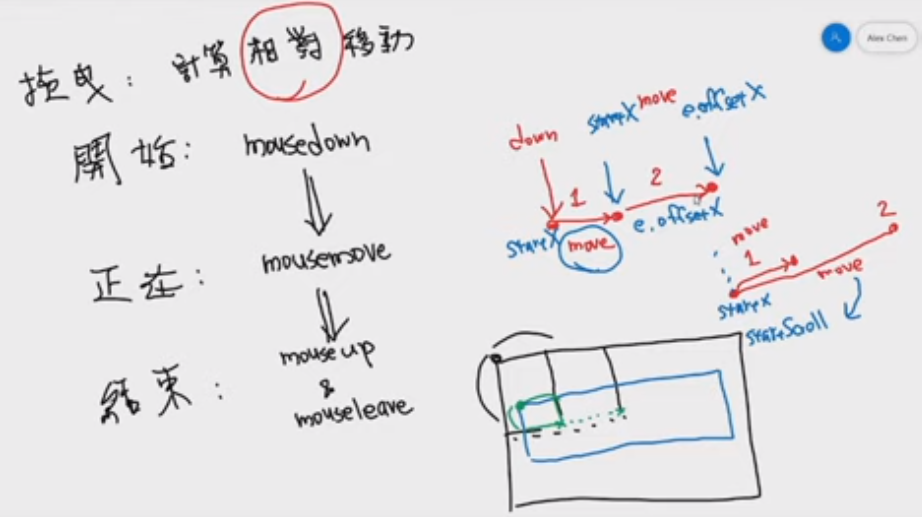 拖曳：計算相對移動
開始：mousedown
正在：mousemove
結束：mouseup
&
mouseleave
Alex Chen
down
startX
move
e.offsetX
1
2
startX
move
e.offsetX
move
1
2
move
startX
startScoll